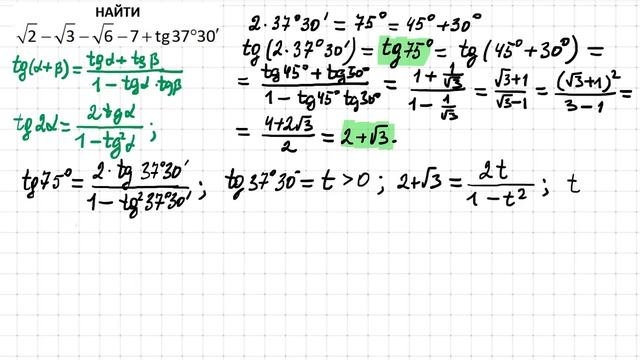 НАЙТИ
√2 − √3 − √6 − 7 + tg 37°30′
tg(α+β) = (tgα + tgβ)/(1 − tgα · tgβ)
tg2α = 2tgα/(1 − tg²α) ;
2 · 37°30′ = 75° = 45° + 30°
tg(2 · 37°30′) = tg75° = tg(45° + 30°) =
= (tg45° + tg30°)/(1 − tg45° tg30°) = (1 + 1/√3)/(1 − 1/√3) = (√3+1)/(√3−1) = (√3+1)²/(3−1) =
= (4+2√3)/2 = 2+√3.
tg75° = (2 · tg 37°30′)/(1 − tg²37°30′) ; tg 37°30′ = t > 0 ; 2+√3 = 2t/(1 − t²) ; t